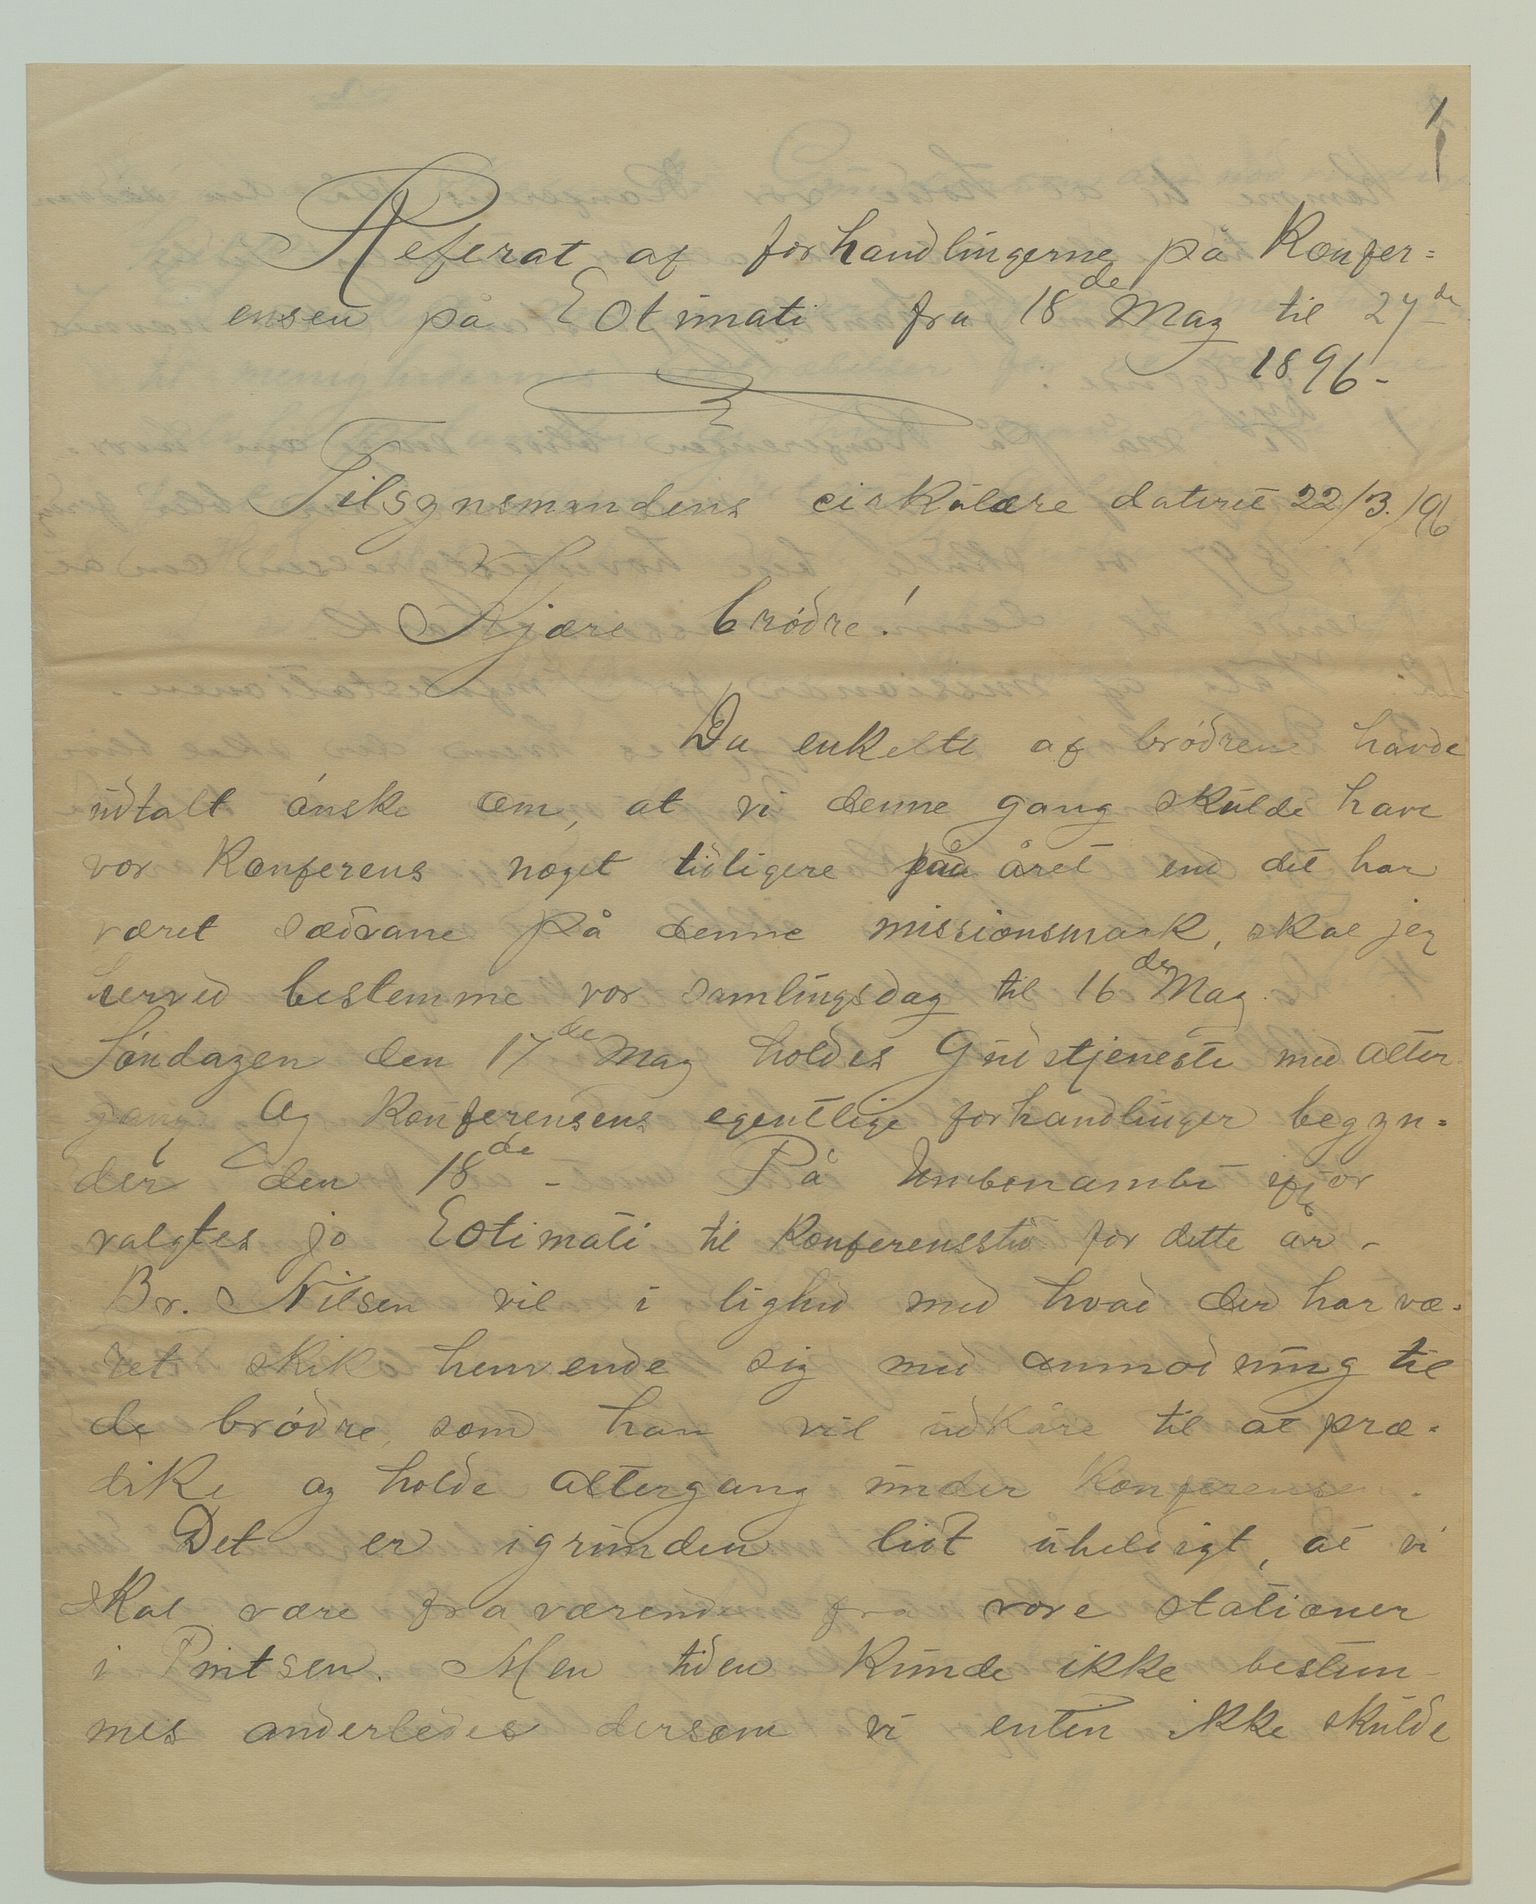 1
Referat af forhandlingerne på Konfer=
ensen på Eotimati fra 18de May til 27de
1896-
Tilsynsmandens cirkulære dateret 22/3./96
Kjære brødre!
Da enkelte af brødrene havde
udtalt ønske om, at vi denne gang skulde have
vor Konferens noget tidligere på året end det har
været sædvane på denne missionsmark, skal jeg
herved bestemme vor samlingsdag til 16de May.
Søndagen den 17de May holdes Gudstjeneste med alter
gang. Og Konferensens egentlige forhandlinger begyn=
der den 18de - På Umbonambi ifjor
valgtes jo Eotimati til Konferenssted for dette år -
Br. Nilsen vil i lighed med hvad der har væ=
ret skik henvende sig med anmodning til
de brødre, som han vil udkåre til at præ=
dike og holde altergang under Konferensen.
Det er igrunden lidt uheldigt, at vi
skal være fraværende fra vore stationer
i Pintsen. Men tiden kunde ikke bestem-
mes anderledes dersom vi enten ikke skulde